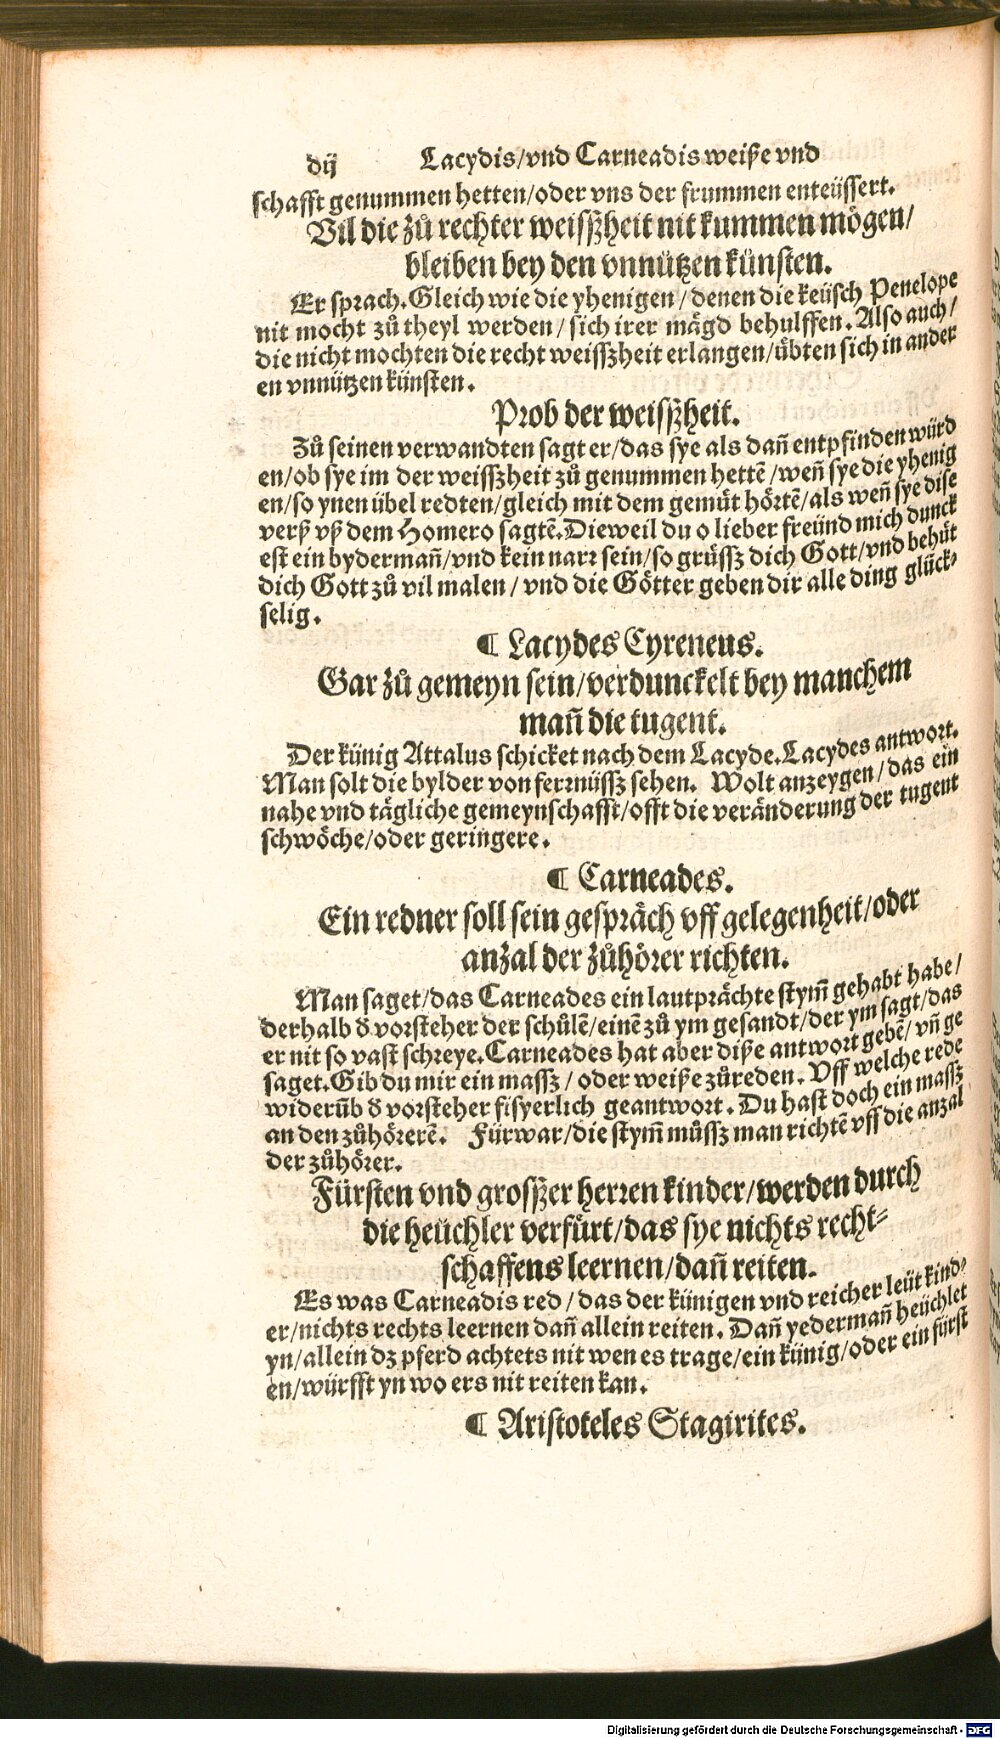 dij Lacydis/vnd Carneadis weiße vnd
schafft genummen hetten/oder vns der frummen enteüssert.
Vil die zů rechter weissheit nit kummen mögen/
bleiben bey den vnnützen künsten.
Er sprach. Gleich wie die yhenigen/denen die keüsch Penelope
nit mocht zů theyl werden/sich irer mägd behulffen. Also auch/
die nicht mochten die recht weisszheit erlangen/übten sich in ander
en vnnützen künsten.
Prob der weisszheit.
Zů seinen verwandten sagt er/das sye als dañ entpfinden würd
en/ob sye im der weisszheit zů genummen hettē/weñ sye die yhenig
en/so ynen übel redten/gleich mit dem gemüt hörtē/als weñ sye dise
verß vß dem Homero sagtē. Dieweil du o lieber freünd mich dunck
est ein bydermañ/vnd kein narr sein/so grüssz dich Gott/vnd behüt
dich Gott zů vil malen/vnd die Götter geben dir alle ding glück⸗
selig.
¶ Lacydes Cyreneus.
Gar zů gemeyn sein/verdunckelt bey manchem
mañ die tugent.
Der künig Attalus schicket nach dem Lacyde. Lacydes antwort.
Man solt die bylder von ferrnüssz sehen. Wolt anzeygen/das ein
nahe vnd tägliche gemeynschafft/offt die veränderung der tugent
schwöche/oder geringere.
¶ Carneades.
Ein redner soll sein gespräch vff gelegenheit/oder
anzal der zůhörer richten.
Man saget/das Carneades ein lautprächte stym̄ gehabt habe/
derhalb d̄ vorsteher der schůlē/einē zů ym gesandt/der ym sagt/das
er nit so vast schreye. Carneades hat aber diße antwort gebē/vñ ge
saget. Gib du mir ein massz/oder weiße zůreden. Vff welche rede
widerūb d̄ vorsteher fisyerlich geantwort. Du hast doch ein massz
an den zůhörerē. Fürwar/die stym̄ můssz man richtē vff die anzal
der zůhörer.
Fürsten vnd grosszer herren kinder/werden durch
die heüchler verfürt/das sye nichts recht⸗
schaffens leernen/dañ reiten.
Es was Carneadis red/das der künigen vnd reicher leüt kind⸗
er/nichts rechts leernen dañ allein reiten. Dañ yedermañ heüchlet
yn/allein dz pferd achtets nit wen es trage/ein künig/oder ein fürst
en/würfft yn wo ers nit reiten kan.
¶ Aristoteles Stagirites.
Digitalisierung gefördert durch die Deutsche Forschungsgemeinschaft - DFG